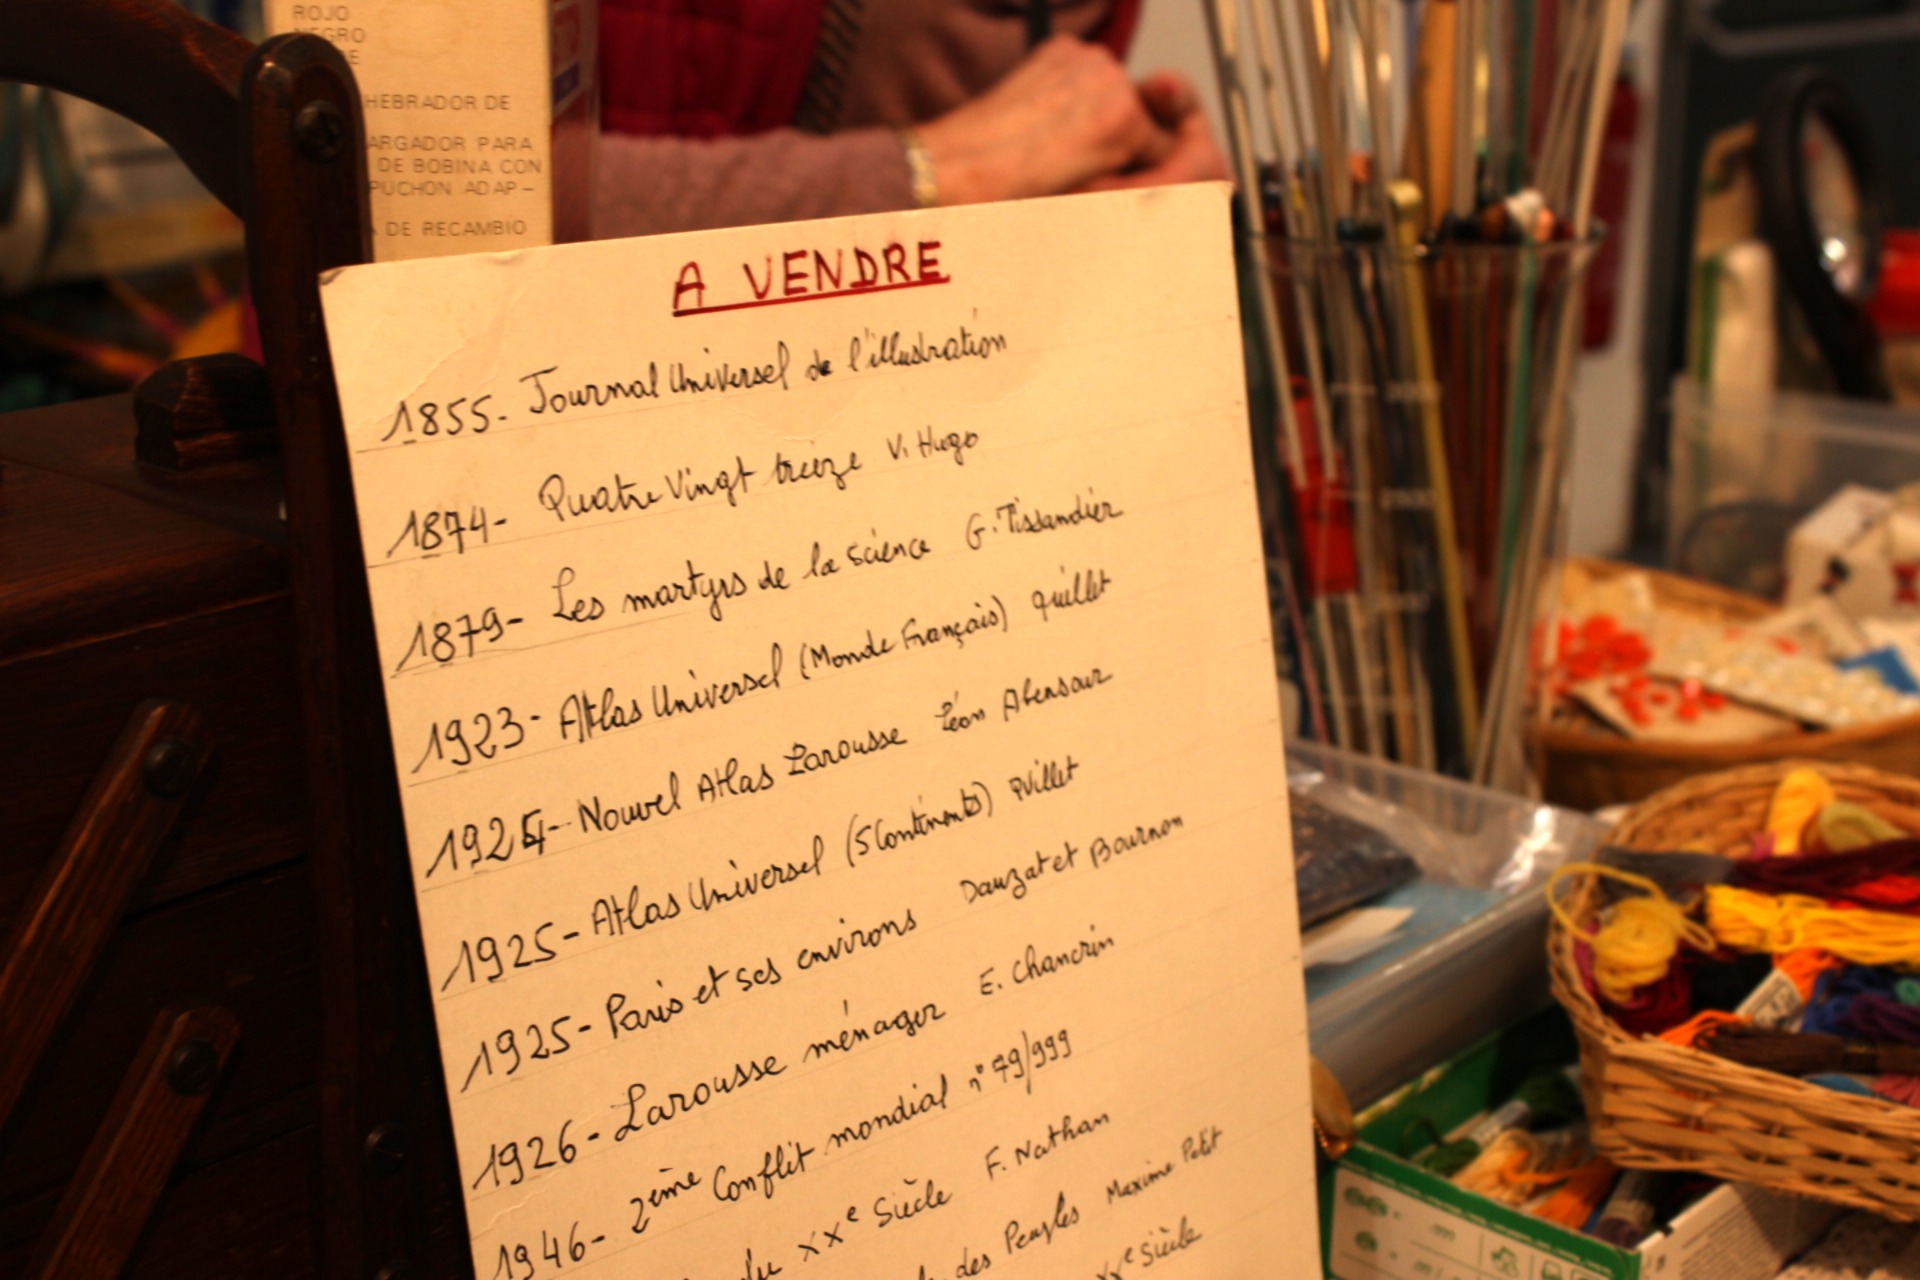 ROJO
NEGRO
HEBRADOR DE
ARGADOR PARA
DE BOBINA CON
PUCHON ADAP-
DE RECAMBIO
A VENDRE
1855- Journal Universel de l'illustration
1874- Quatre Vingt treize V. Hugo
1879- Les martyrs de la science G. Tissandier
1923- Atlas Universel (Monde Français) quillet
1924- Nouvel Atlas Larousse Léon Abensour
1925- Atlas Universel (5 Continents) Quillet
1925- Paris et ses environs Dauzat et Bournon
1926- Larousse ménager E. Chancrin
1946- 2ème Conflit mondial n° 79/999
du XXe Siècle F. Nathan
des Peuples Maxime Petit
XXe Siècle